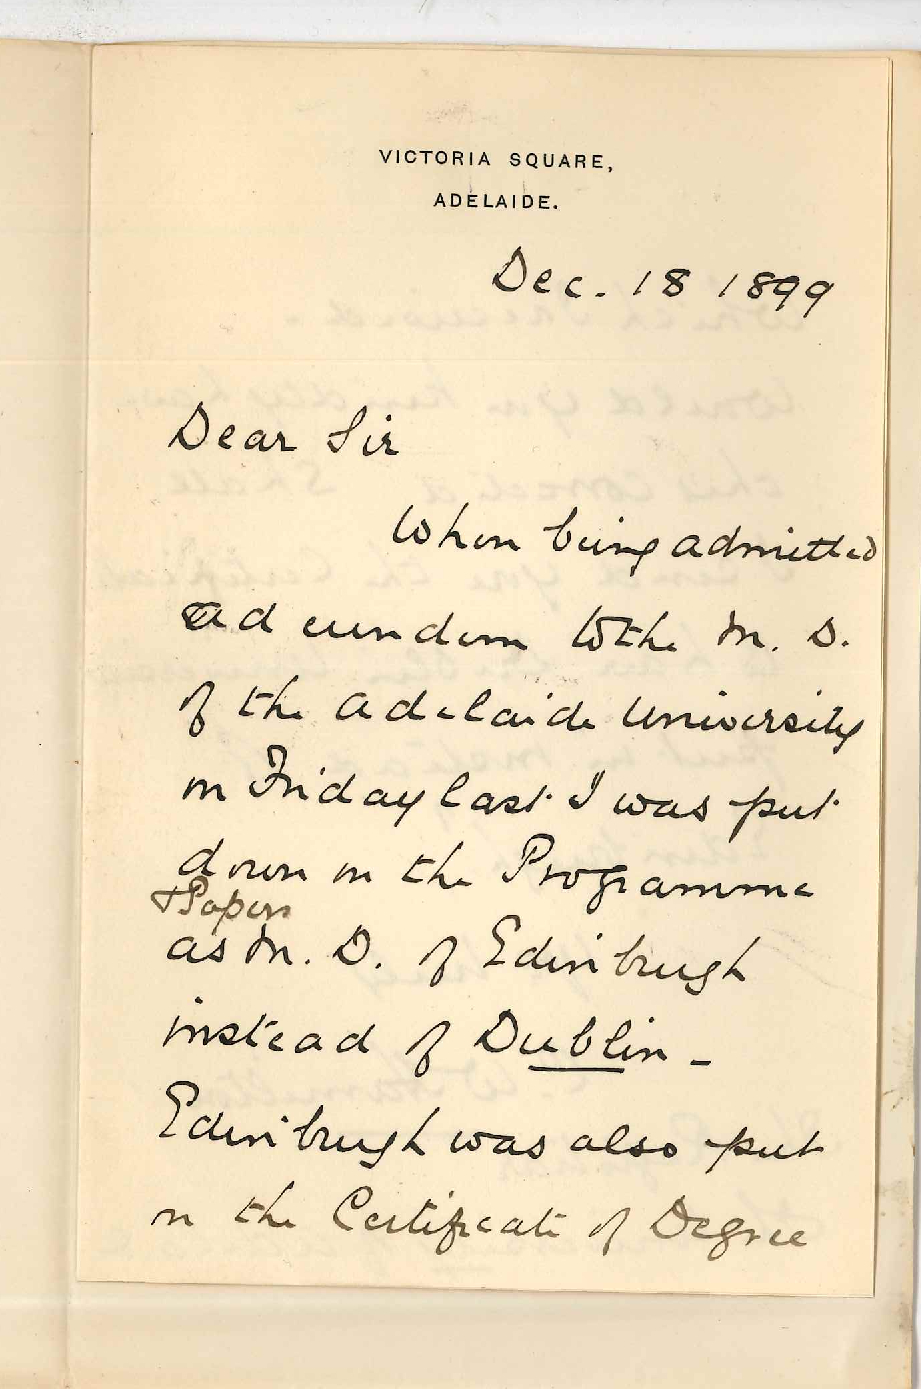 VICTORIA SQUARE,
ADELAIDE.
Dec. 18 1899
Dear Sir
When being admitted
ad eundem to the M. D.
of the Adelaide University
on Friday last I was put
down in the Programme
& Papers
as M. D. of Edinburgh
instead of Dublin -
Edinburgh was also put
on the Certificate of Degree